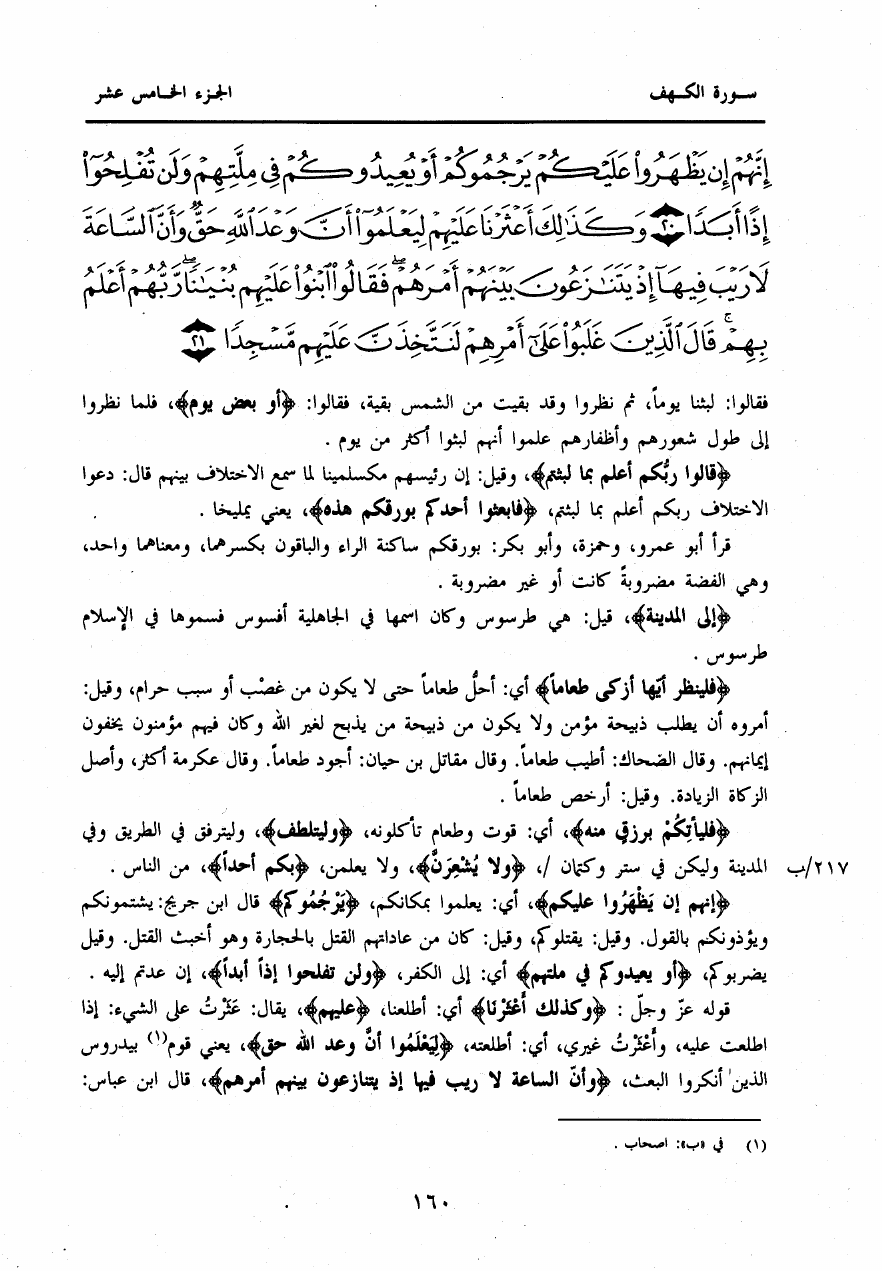 سورة الكهف
الجزء الخامس عشر
إِنَّهُمْ إِن يَظْهَرُوا۟ عَلَيْكُمْ يَرْجُمُوكُمْ أَوْ يُعِيدُوكُمْ فِى مِلَّتِهِمْ وَلَن تُفْلِحُوٓا۟
إِذًا أَبَدًا ٢٠ وَكَذَٰلِكَ أَعْثَرْنَا عَلَيْهِمْ لِيَعْلَمُوٓا۟ أَنَّ وَعْدَ ٱللَّهِ حَقٌّ وَأَنَّ ٱلسَّاعَةَ
لَا رَيْبَ فِيهَآ إِذْ يَتَنَٰزَعُونَ بَيْنَهُمْ أَمْرَهُمْ ۖ فَقَالُوا۟ ٱبْنُوا۟ عَلَيْهِم بُنْيَٰنًا ۖ رَّبُّهُمْ أَعْلَمُ
بِهِمْ ۚ قَالَ ٱلَّذِينَ غَلَبُوا۟ عَلَىٰٓ أَمْرِهِمْ لَنَتَّخِذَنَّ عَلَيْهِم مَّسْجِدًا ٢١
فقالوا: لبثنا يوماً، ثم نظروا وقد بقيت من الشمس بقية، فقالوا: ﴿أو بعض يوم﴾، فلما نظروا
إلى طول شعورهم وأظفارهم علموا أنهم لبثوا أكثر من يوم .
﴿قالوا ربُّكم أعلم بما لبثتم﴾، وقيل: إن رئيسهم مكسلمينا لما سمع الاختلاف بينهم قال: دعوا
الاختلاف ربكم أعلم بما لبثتم، ﴿فابعثوا أحدكم بورقكم هذه﴾، يعني يمليخا .
قرأ أبو عمرو، وحمزة، وأبو بكر: بورقكم ساكنة الراء والباقون بكسرهما، ومعناهما واحد،
وهي الفضة مضروبةً كانت أو غير مضروبة .
﴿إلى المدينة﴾، قيل: هي طرسوس وكان اسمها في الجاهلية أفسوس فسموها في الإسلام
طرسوس .
﴿فلينظر أيّها أزكى طعاماً﴾ أي: أحلُّ طعاماً حتى لا يكون من غصْب أو سبب حرام، وقيل:
أمروه أن يطلب ذبيحة مؤمن ولا يكون من ذبيحة من يذبح لغير الله وكان فيهم مؤمنون يخفون
إيمانهم. وقال الضحاك: أطيب طعاماً. وقال مقاتل بن حيان: أجود طعاماً. وقال عكرمة أكثر، وأصل
الزكاة الزيادة. وقيل: أرخص طعاماً .
﴿فليأتِكُمْ برزقٍ منه﴾، أي: قوت وطعام تأكلونه، ﴿وليتلطف﴾، وليترفق في الطريق وفي
المدينة وليكن في ستر وكتمان /، ﴿ولا يُشْعِرَنَّ﴾، ولا يعلمن، ﴿بكم أحداً﴾، من الناس .
٢١٧/ب
﴿إنهم إن يَظْهَرُوا عليكم﴾، أي: يعلموا بمكانكم، ﴿يَرْجُمُوكم﴾ قال ابن جريج: يشتمونكم
ويؤذونكم بالقول. وقيل: يقتلوكم، وقيل: كان من عاداتهم القتل بالحجارة وهو أخبث القتل. وقيل
يضربوكم، ﴿أو يعيدوكم في ملتهم﴾ أي: إلى الكفر، ﴿ولن تفلحوا إذاً أبداً﴾، إن عدتم إليه .
قوله عزّ وجلّ : ﴿وكذلك أَعْثَرْنَا﴾ أي: أطلعنا، ﴿عليهم﴾، يقال: عَثَرْتُ على الشيء: إذا
اطلعت عليه، وأَعْثَرْتُ غيري، أي: أطلعته، ﴿لِيَعْلَمُوا أنَّ وعد الله حق﴾، يعني قوم(١) بيدروس
الذين أنكروا البعث، ﴿وأنّ الساعة لا ريب فيها إذ يتنازعون بينهم أمرهم﴾، قال ابن عباس:
(١) في «ب»: اصحاب .
١٦٠